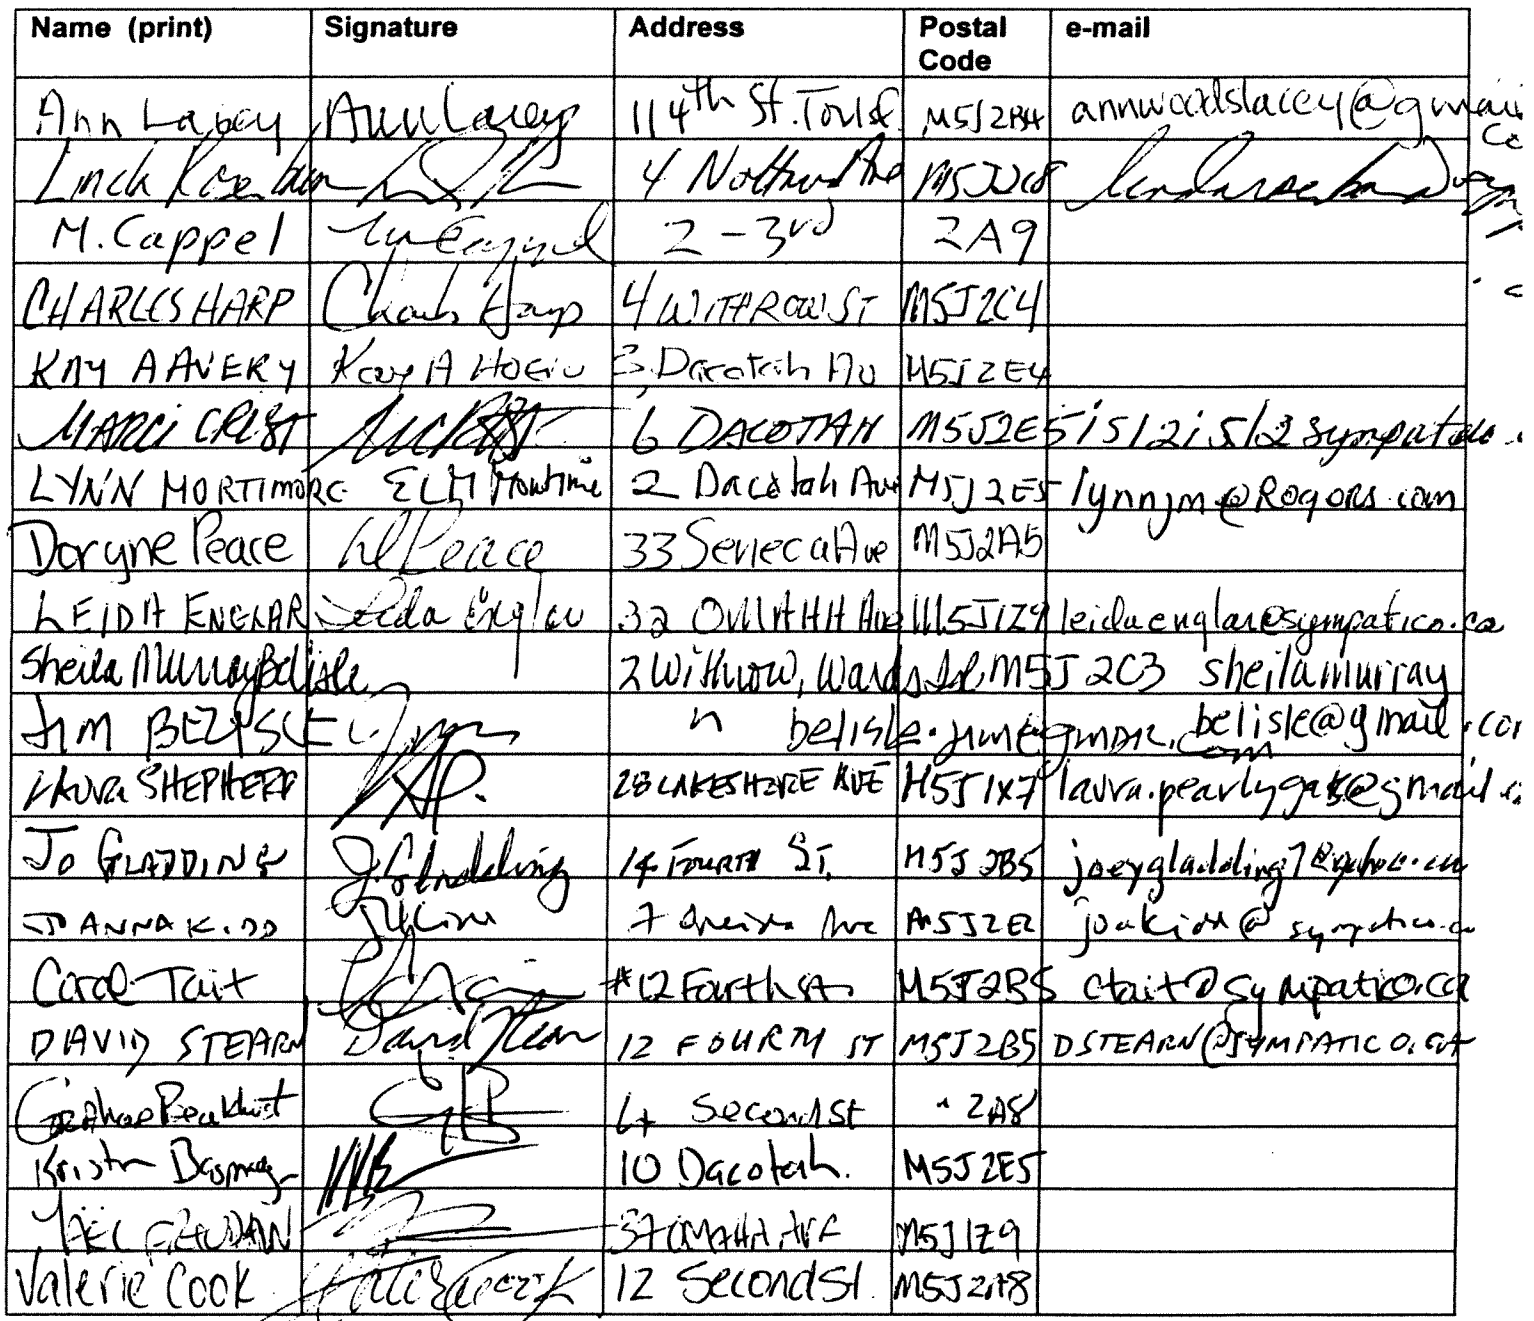 Name (print) Signature Address Postal Code e-mail
Ann Lacey Ann Lacey 11 4th St. M5J2B4 annwoodslacey@gmail
M. Cappel 2 - 3rd 2A9
CHARLES HARP Charles Harp 4 WITHROW ST M5J2C4
KAY A AVERY Kay A 3 Dacotah Av M5J2E4
MARCI CRIST 6 DACOTAH M5J2E5
LYNN MORTIMORE 2 Dacotah Ave M5J2E5 lynnjm@Rogers.com
Doryne Peace D Peace 33 Seneca Ave M5J2A5
LEIDA ENGLAR Leida Englar 32 OMAHA Ave M5J1Z9 leidaenglar@sympatico.ca
Sheila Murray Belisle 2 Withrow, Wards Isl, M5J 2C3 sheilamurray
JIM BELISLE " belisle.jim@gmail.com belisle@gmail.com
LAURA SHEPHERD 28 LAKESHORE AVE M5J1X7 laura.pearlygate@gmail
JO GLADDING J. Gladding 14 FOURTH ST. M5J 2B5 joeygladding7@yahoo
JOANNA KIDD 7 M5J2E2 joakidd@sympatico.ca
Carol Tait #12 Fourth St. M5J2B5 ctait@sympatico.ca
DAVID STEARN David Stearn 12 FOURTH ST M5J2B5 DSTEARN@SYMPATICO.CA
4 Second St " 2A8
Kristin 10 Dacotah. M5J2E5
37 OMAHA AVE M5J1Z9
Valerie Cook 12 Second St. M5J2A8